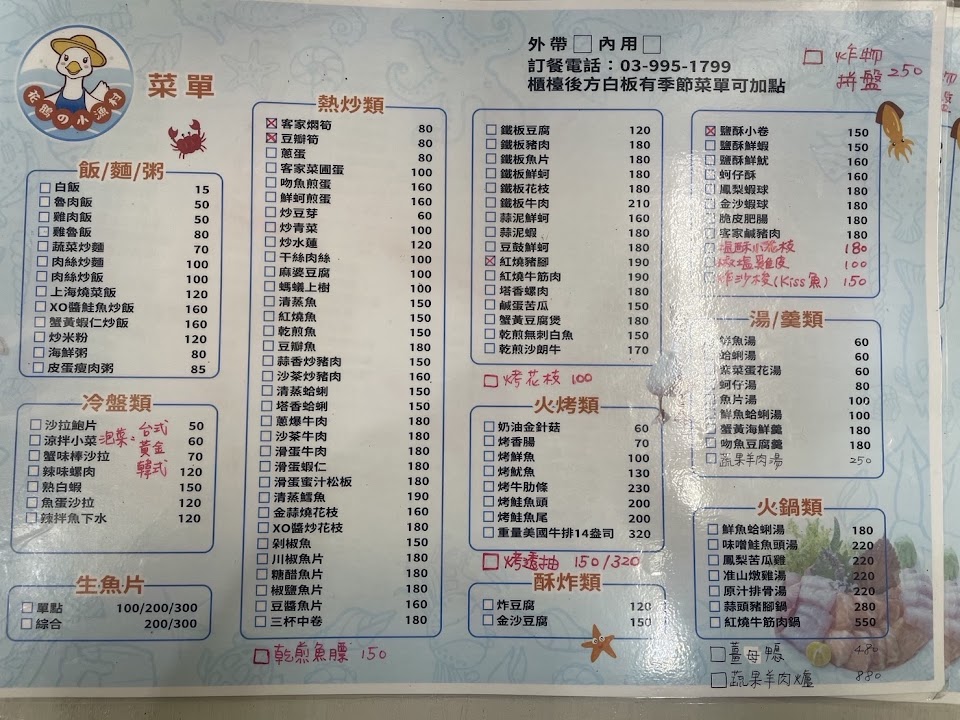 花鴨の小漁村
菜單
外帶□ 內用□
訂餐電話：03-995-1799
櫃檯後方白板有季節菜單可加點
□ 炸物拼盤 250
飯/麵/粥
□白飯 15
□魯肉飯 50
□雞肉飯 50
□雞魯飯 80
□蔬菜炒麵 70
□肉絲炒麵 100
□肉絲炒飯 100
□上海燒菜飯 120
□XO醬鮭魚炒飯 160
□蟹黃蝦仁炒飯 160
□炒米粉 120
□海鮮粥 80
□皮蛋瘦肉粥 85
冷盤類
□沙拉鮑片 50
□涼拌小菜 60
泡菜：台式 黃金 韓式
□蟹味棒沙拉 70
□辣味螺肉 120
□熟白蝦 150
□魚蛋沙拉 120
□辣拌魚下水 120
生魚片
□單點 100/200/300
□綜合 200/300
熱炒類
☒客家燜筍 80
☒豆瓣筍 80
□蔥蛋 80
□客家菜圃蛋 100
□吻魚煎蛋 160
□鮮蚵煎蛋 160
□炒豆芽 60
□炒青菜 100
□炒水蓮 120
□干絲肉絲 100
□麻婆豆腐 100
□螞蟻上樹 100
□清蒸魚 150
□紅燒魚 150
□乾煎魚 150
□豆瓣魚 180
□蒜香炒豬肉 150
□沙茶炒豬肉 160
□清蒸蛤蜊 150
□塔香蛤蜊 150
□蔥爆牛肉 180
□沙茶牛肉 180
□滑蛋牛肉 180
□滑蛋蝦仁 180
□滑蛋蜜汁松板 180
□清蒸鱈魚 190
□金蒜燒花枝 160
□XO醬炒花枝 180
□剁椒魚 150
□川椒魚片 180
□糖醋魚片 180
□椒鹽魚片 180
□豆醬魚片 160
□三杯中卷 180
□乾煎魚腰 150
□鐵板豆腐 120
□鐵板豬肉 180
□鐵板魚片 180
□鐵板鮮蚵 180
□鐵板花枝 180
□鐵板牛肉 210
□蒜泥鮮蚵 160
□蒜泥蝦 180
□豆鼓鮮蚵 180
☒紅燒豬腳 190
□紅燒牛筋肉 190
□塔香螺肉 180
□鹹蛋苦瓜 150
□蟹黃豆腐煲 180
□乾煎無刺白魚 150
□乾煎沙朗牛 170
□烤花枝 100
火烤類
□奶油金針菇 60
□烤香腸 70
□烤鮮魚 100
□烤魷魚 130
□烤牛肋條 230
□烤鮭魚頭 200
□烤鮭魚尾 200
□重量美國牛排14盎司 320
□烤透抽 150/320
酥炸類
□炸豆腐 120
□金沙豆腐 150
☒鹽酥小卷 150
□鹽酥鮮蝦 150
□鹽酥鮮魷 160
□蚵仔酥 160
□鳳梨蝦球 180
□金沙蝦球 180
□脆皮肥腸 180
□客家鹹豬肉 180
□鹽酥小花枝 180
□椒塩雞皮 100
□炸沙梭(Kiss魚) 150
湯/羹類
□鮮魚湯 60
□蛤蜊湯 60
□紫菜蛋花湯 60
□蚵仔湯 80
□魚片湯 100
□鮮魚蛤蜊湯 100
□蟹黃海鮮羹 180
□吻魚豆腐羹 180
□蔬果羊肉湯 250
火鍋類
□鮮魚蛤蜊湯 180
□味噌鮭魚頭湯 220
□鳳梨苦瓜雞 220
□准山燉雞湯 220
□原汁排骨湯 220
□蒜頭豬腳鍋 280
□紅燒牛筋肉鍋 550
□薑母鴨 480
□蔬果羊肉爐 880